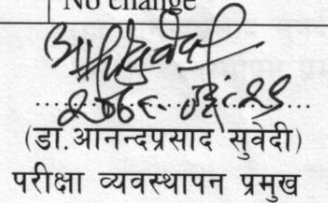 No change
(डा.आनन्दप्रसाद सुवेदी)
परीक्षा व्यवस्थापन प्रमुख